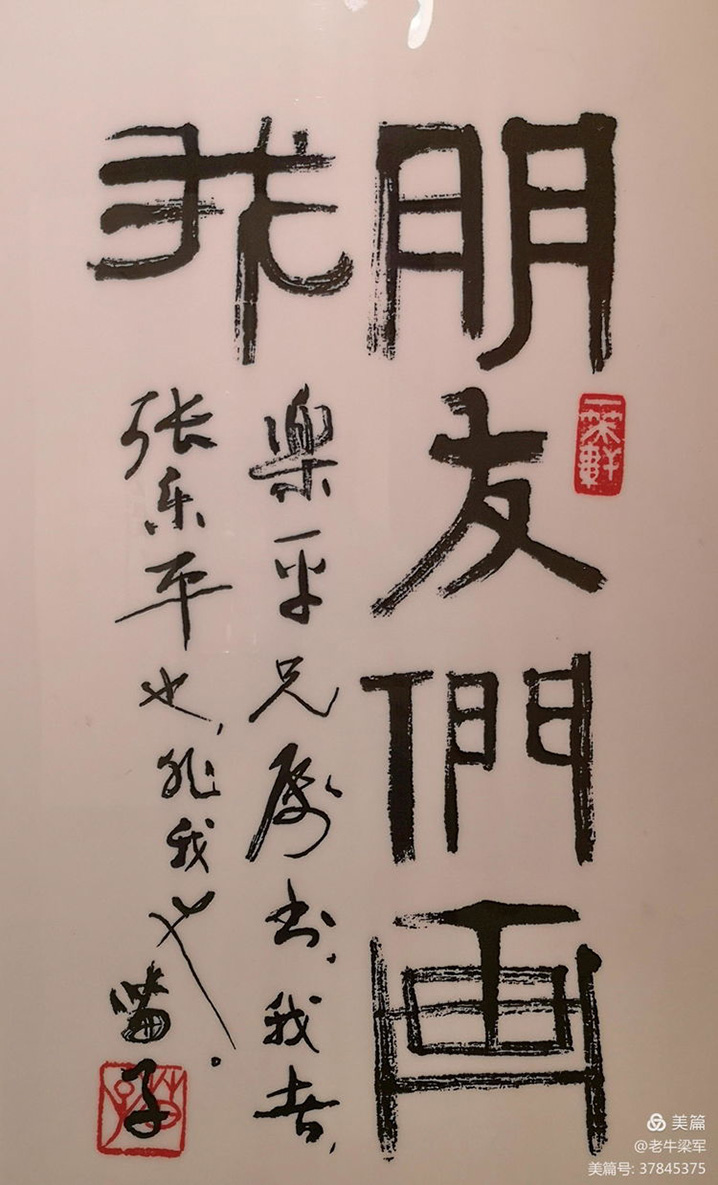 朋友們画
我
樂平兄属书,我者,
张乐平也,非我也。
苗子
美篇
@老牛梁军
美篇号: 37845375